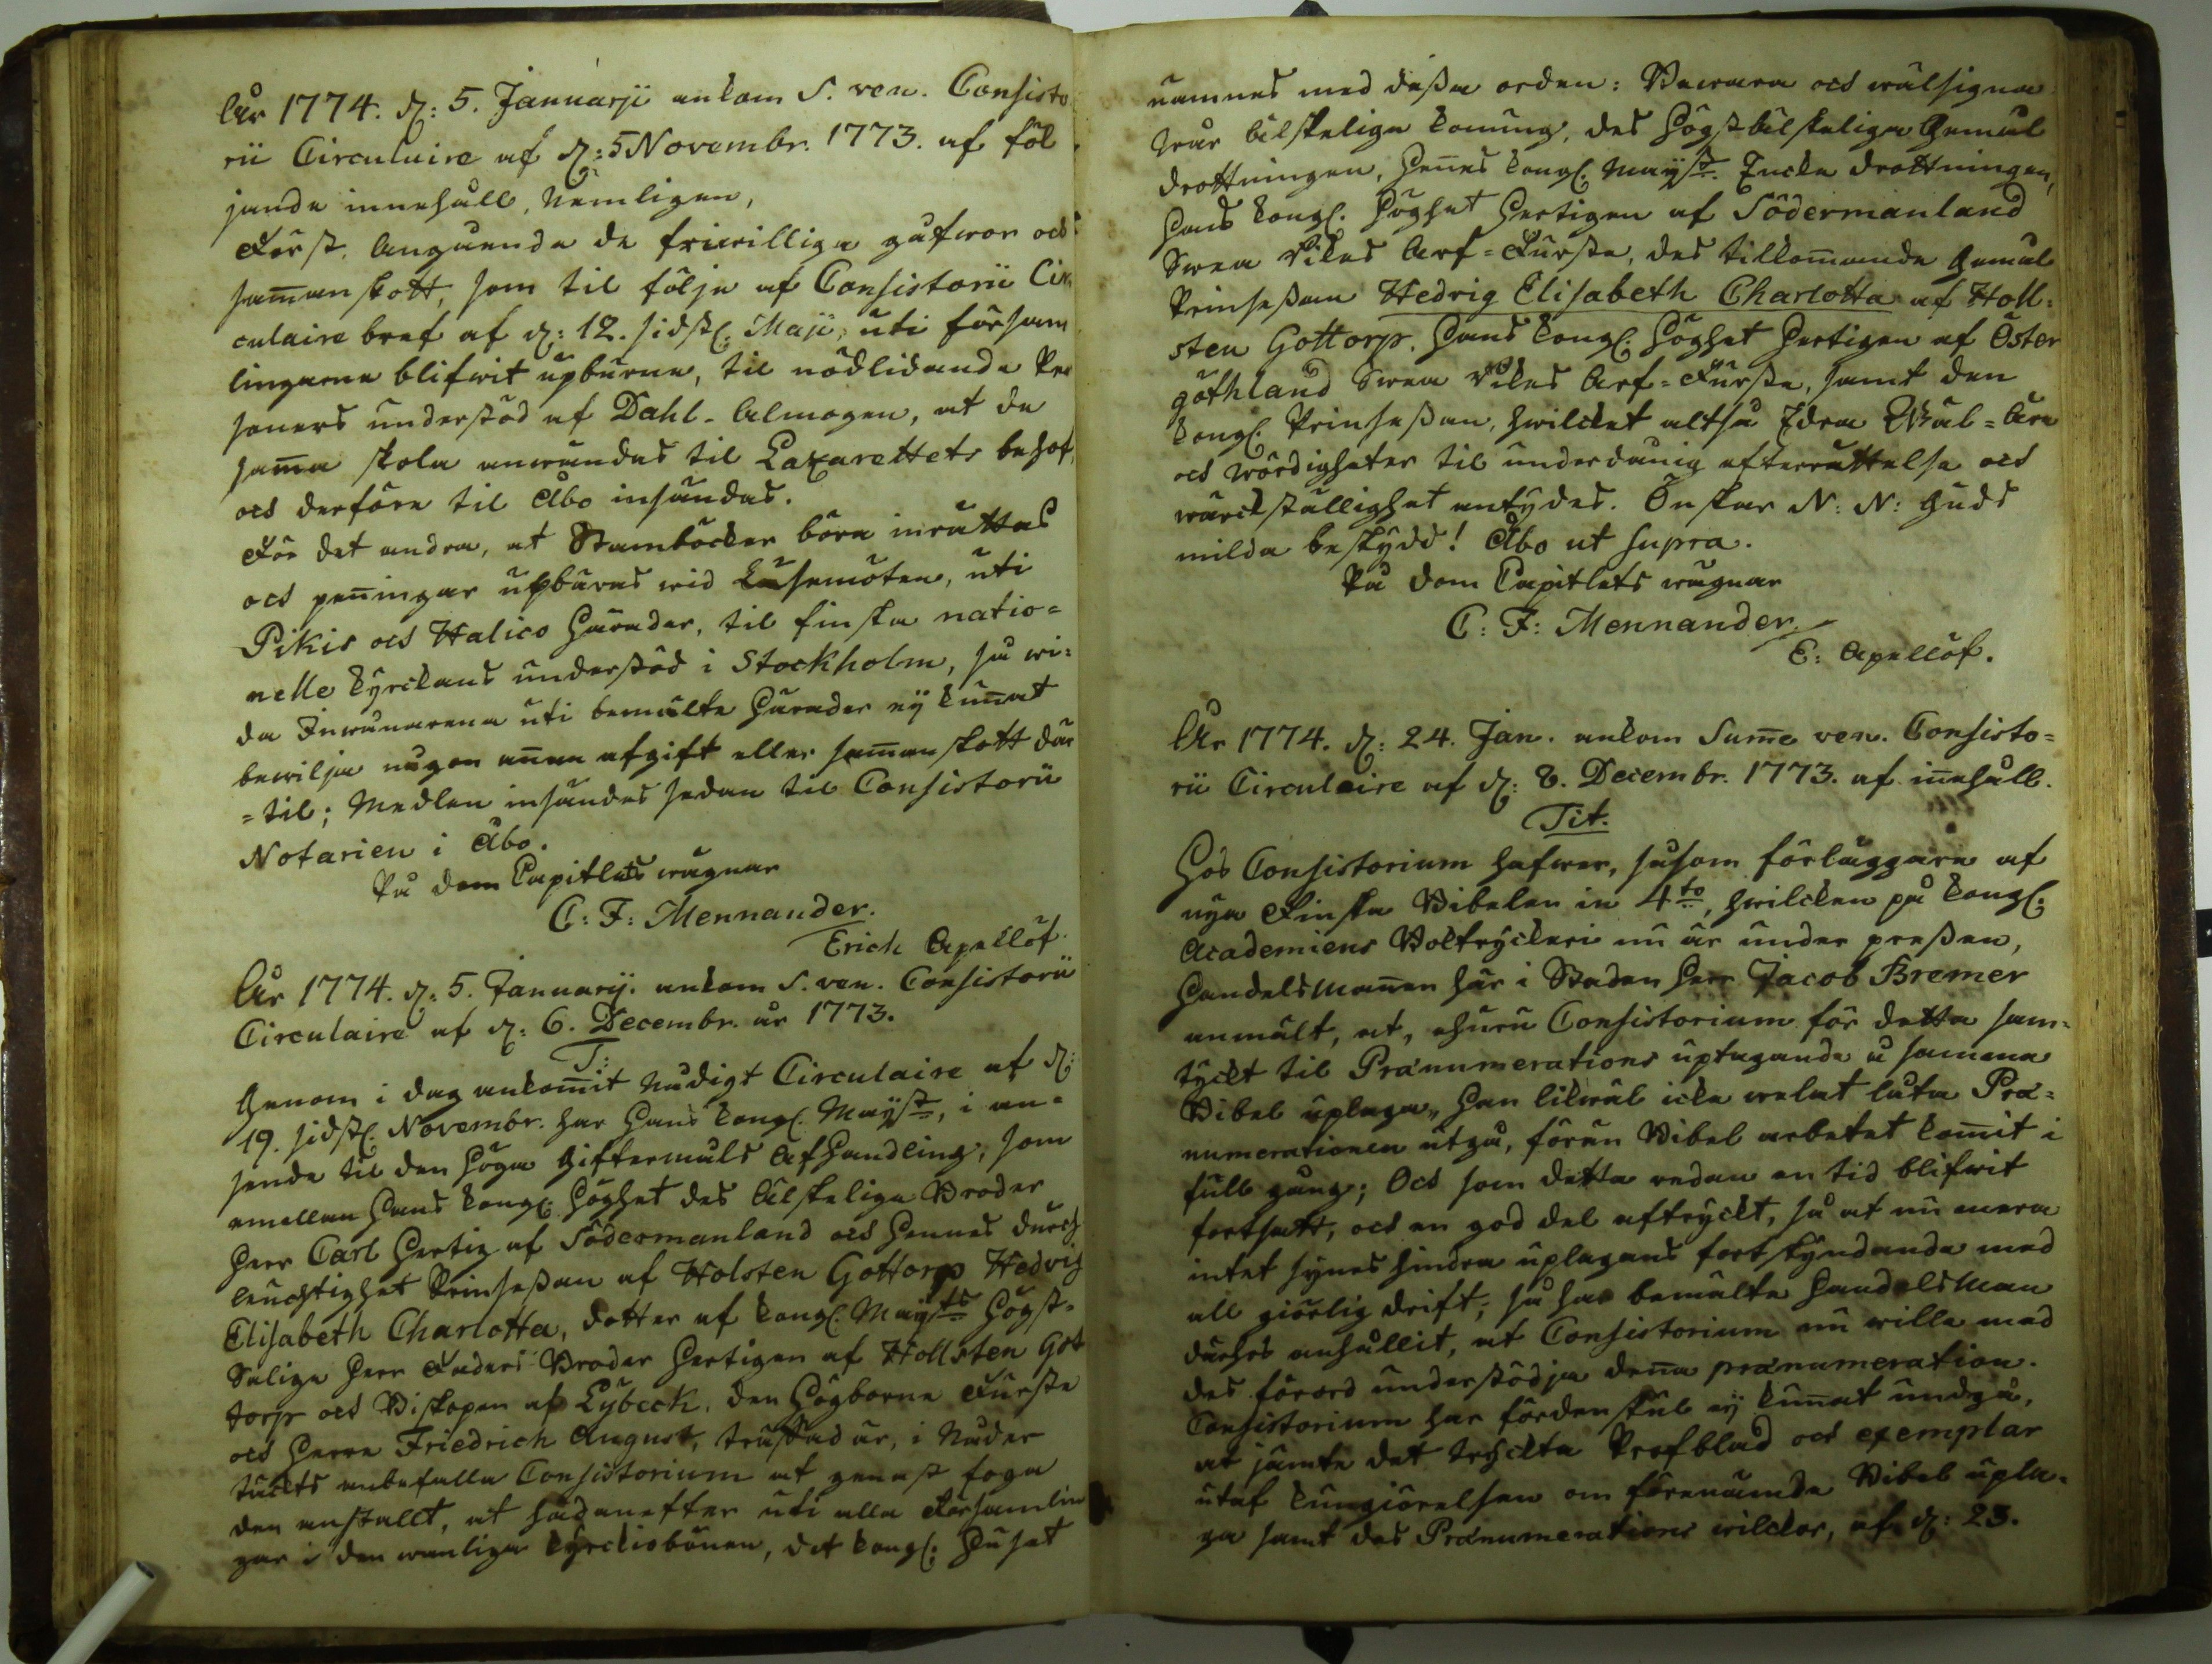 År 1774. d: 5. Januarji ankom S. ven. Consisto
rii Circulaire af d: 5 Novembr. 1773. af föl
jande innehåll, Nemligen,
Först. Angående de friwilliga gåfwor och
samanskott, som til följe af Consistorii Cir
culaire bref af d: 12. sidstl. Maji, uti försam
lingarne blifwit upburne, til nödlidande Per
soners understöd af Dahl-Almogen, at de
samma skola anwändas til Lazarettets behof,
och derföre til Åbo insändas.
För det andra, at Stamböcker böra inrättas
och penningar upbäras wid Läsemöten, uti
Pikis och Halico Härader, til finska natio=
nelle kyrckans understöd i Stockholm, så wi=
da Inwånarena uti bemälte Härader ej kunnat
bewilja någon annan afgift eller samanskott där
=til; Medlen insändes sedan til Consistorii
Notarien i Åbo.
På Dom Capitlets wägnar
C: F: Mennander.
Erich Apellöf.
År 1774. d: 5. Januarij. ankom S. ven. Consistorii
Circulaire af d: 6. Decembr. år 1773.
T:
Genom i dag ankommit Nådigt Circulaire af d:
19. sidstl. Novembr. har Hans Kongl. Mayst, i an=
sende til den höga Giftermåls Afhandling, som
emellan Hans Kongl. Höghet des Älskelige Broder
Herr Carl Hertig af Södermanland och Hennes Durch
leuchtighet Prinsessan af Holsten Gottorp Hedvig
Elisabeth Charlotta, dotter af Kongl. Maysts Högst=
Salige Herr Faders Broder Hertigen af Hollsten Got
torp och Biskopen af Lybeck, den Högborne Furste
och Herre Friedrich August, träffad är, i Nåder
täckts anbefalla Consistorium at genast foga
den anstallt, at hädanefter uti alla Församlin
gar i den wanliga Kyrckiobönen, det Kongl. Huset
nämnes med dessa orden: Bewara och wälsigna
wår Älskelige Konung, des Högstälskeliga Gemål
Drottningen, Hennes Kongl. Mayst. Encke Drottningen,
Hans Kongl. Höghet Hertigen af Södermanland
Swea Rikes Arf=Furste, des tilkommande Gemål
Prinsessan Hedvig Elisabeth Charlotta af Holl=
sten Gottorp. Hans Kongl. Höghet Hertigen af Öster
göthland Swea Rikes Arf=Furste, samt den
Kongl. Prinsessan, hwilcket altså Edra Wäl=Äre
och Wördigheter til underdånig efterrättelse och
wärckställighet antydes. Önskar N: N: Guds
milda beskydd! Åbo ut supra.
På Dom Capitlets wägnar
C: F: Mennander.
E: Apellöf.
År 1774. d: 24. Jan. ankom Summe ven. Consisto=
rii Circulaire af d: 8. Decembr. 1773. af innehåll.
Tit.
Hos Consistorium hafwer, såsom förläggare af
nya Finska Bibelen in 4to, hwilcken på Kongl.
Academiens Boktryckeri nu är under pressen,
Handelsmannen här i Staden Herr Jacob Bremer
anmält, at, ehuru Consistorium för detta sam=
tyckt til Pränumerations uptagande å samma
Bibel uplaga, han likwäl icke welat låta Prä=
numerationen utgå, förän Bibel arbetet kommit i
full gång; Och som detta redan en tid blifwit
fortsatt, och en god del aftryckt, så at nu mera
intet synes hindra uplagans fortskyndande med
all giörlig drift, så har bemälte Handelsman
därhos anhållit, at Consistorium nu wille med
des förord understödja denna pränumeration.
Consistorium har fördenskul ej kunnat undgå,
at jämte det tryckta Profblad och exemplar
utaf kungiörelsen om förenämde Bibel upla=
ga samt des Pränumerations wilckor, af d: 23.